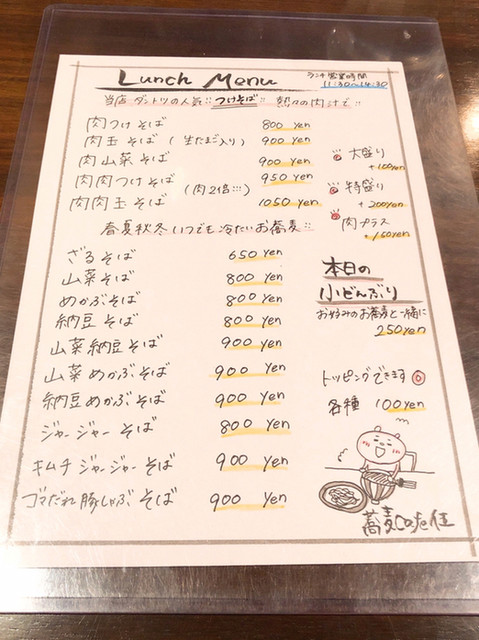 Lunch Menu
ランチ営業時間
11:30〜14:30
当店ダントツの人気!! つけそば!! 熱々の肉汁で!!
肉つけそば 800 yen
肉玉そば (生たまご入り) 900 yen
肉山菜そば 900 yen
肉肉つけそば 950 yen
肉肉玉そば (肉2倍!!!) 1050 yen
大盛り
+100yen
特盛り
+200yen
肉プラス
+150yen
春夏秋冬いつでも冷たいお蕎麦!!
ざるそば 650 yen
山菜そば 800 yen
めかぶそば 800 yen
納豆そば 800 yen
山菜納豆そば 900 yen
山菜めかぶそば 900 yen
納豆めかぶそば 900 yen
ジャージャーそば 800 yen
キムチジャージャーそば 900 yen
ゴマだれ豚しゃぶそば 900 yen
本日の
小どんぶり
お好みのお蕎麦と一緒に
250yen
トッピングできます
各種 100yen
蕎麦